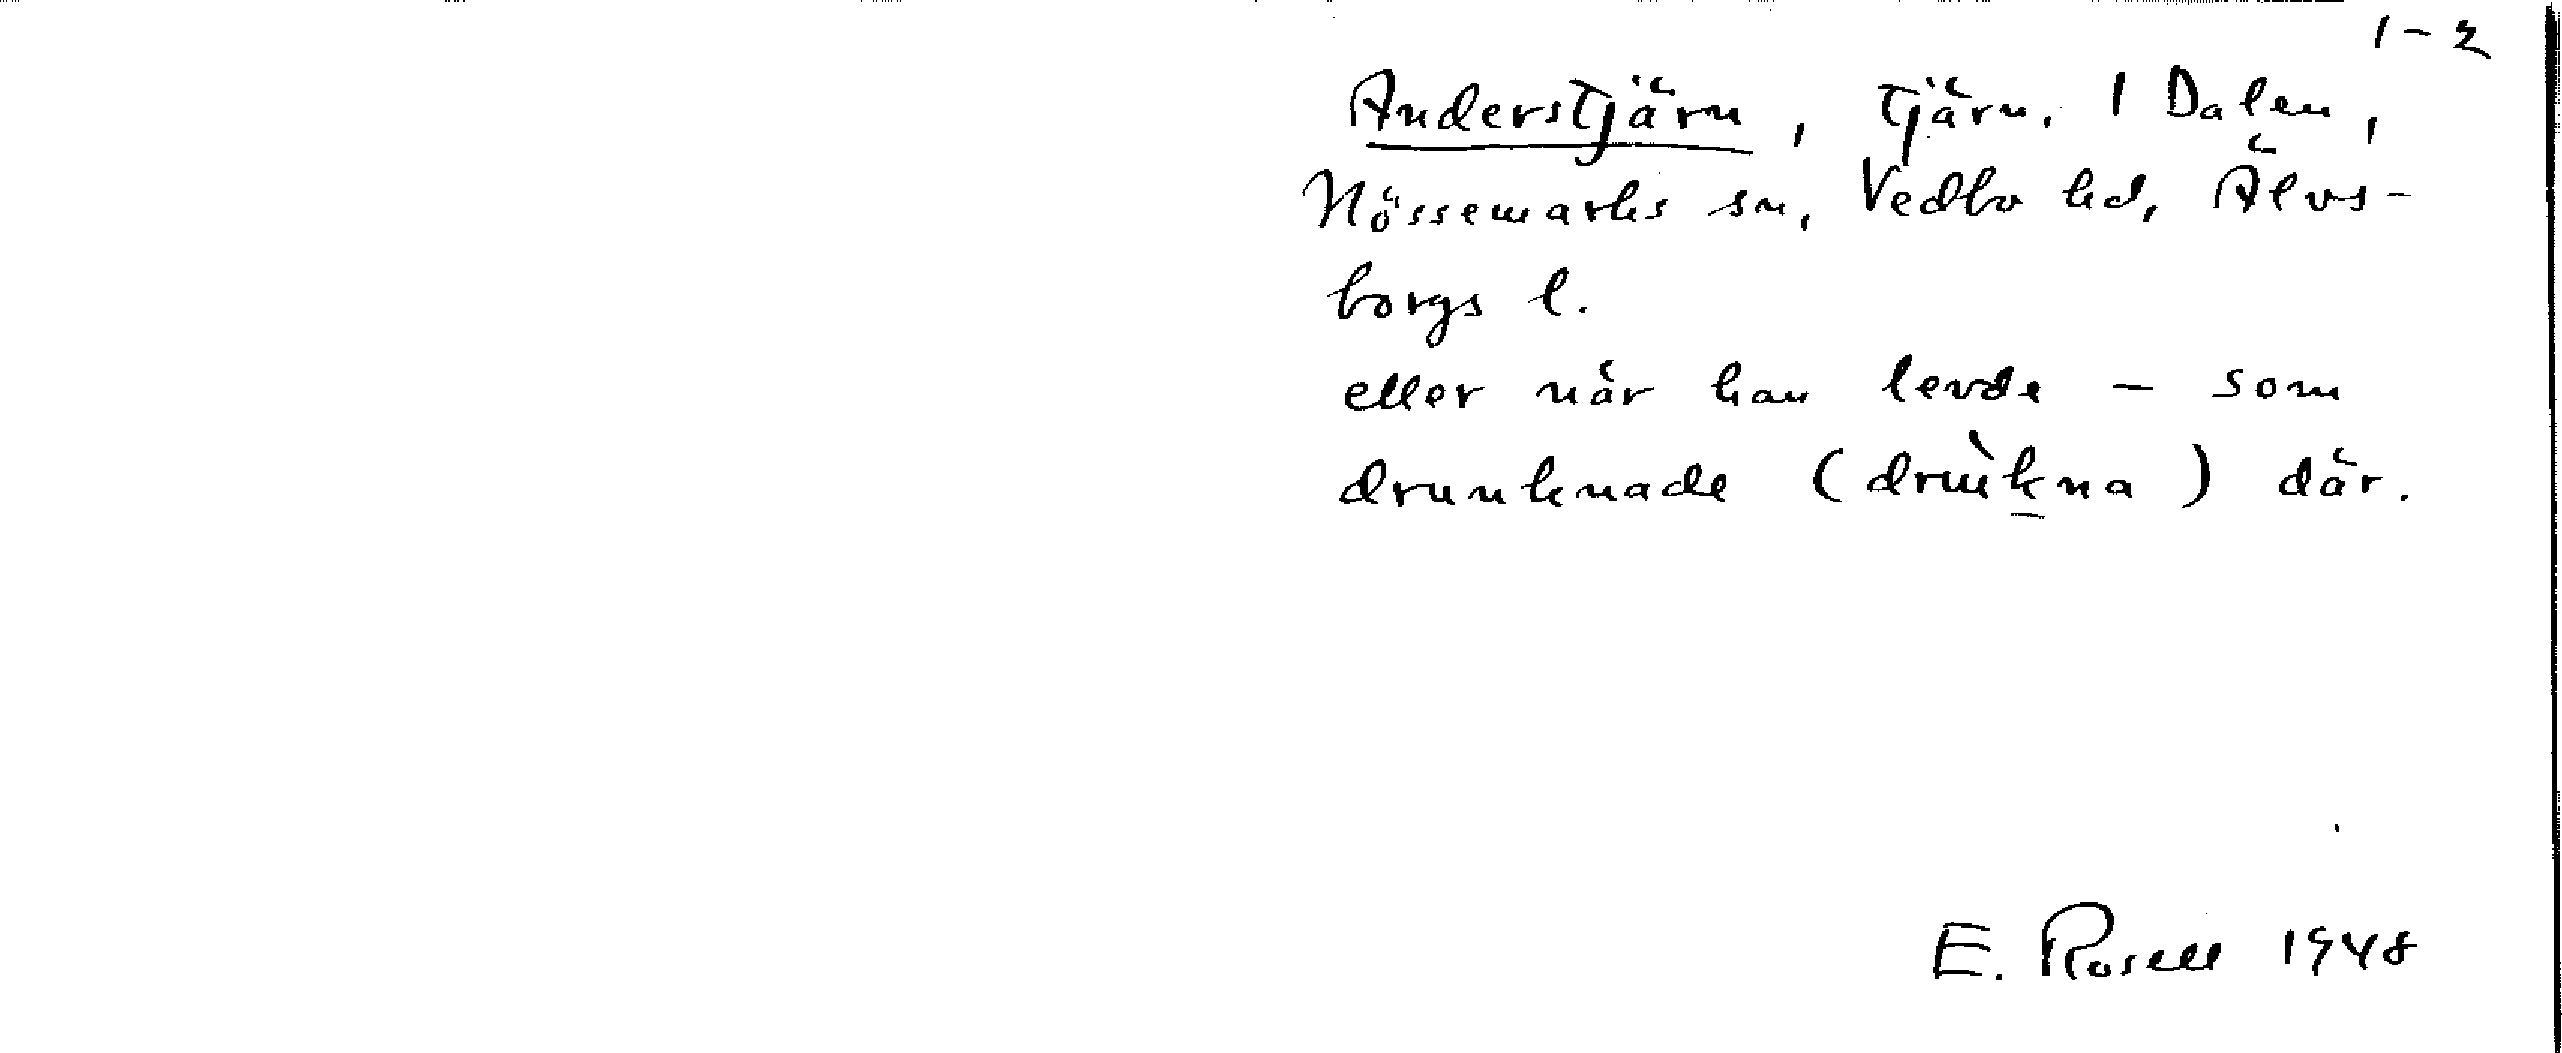 1-2
Anderstjärn, tjärn. 1 Dalen,
Nössemarks sn, Vedbo hd, Älvs-
borgs l.
eller när han levde - som
drunknade (drùkna) där.
E. Rosell 1948